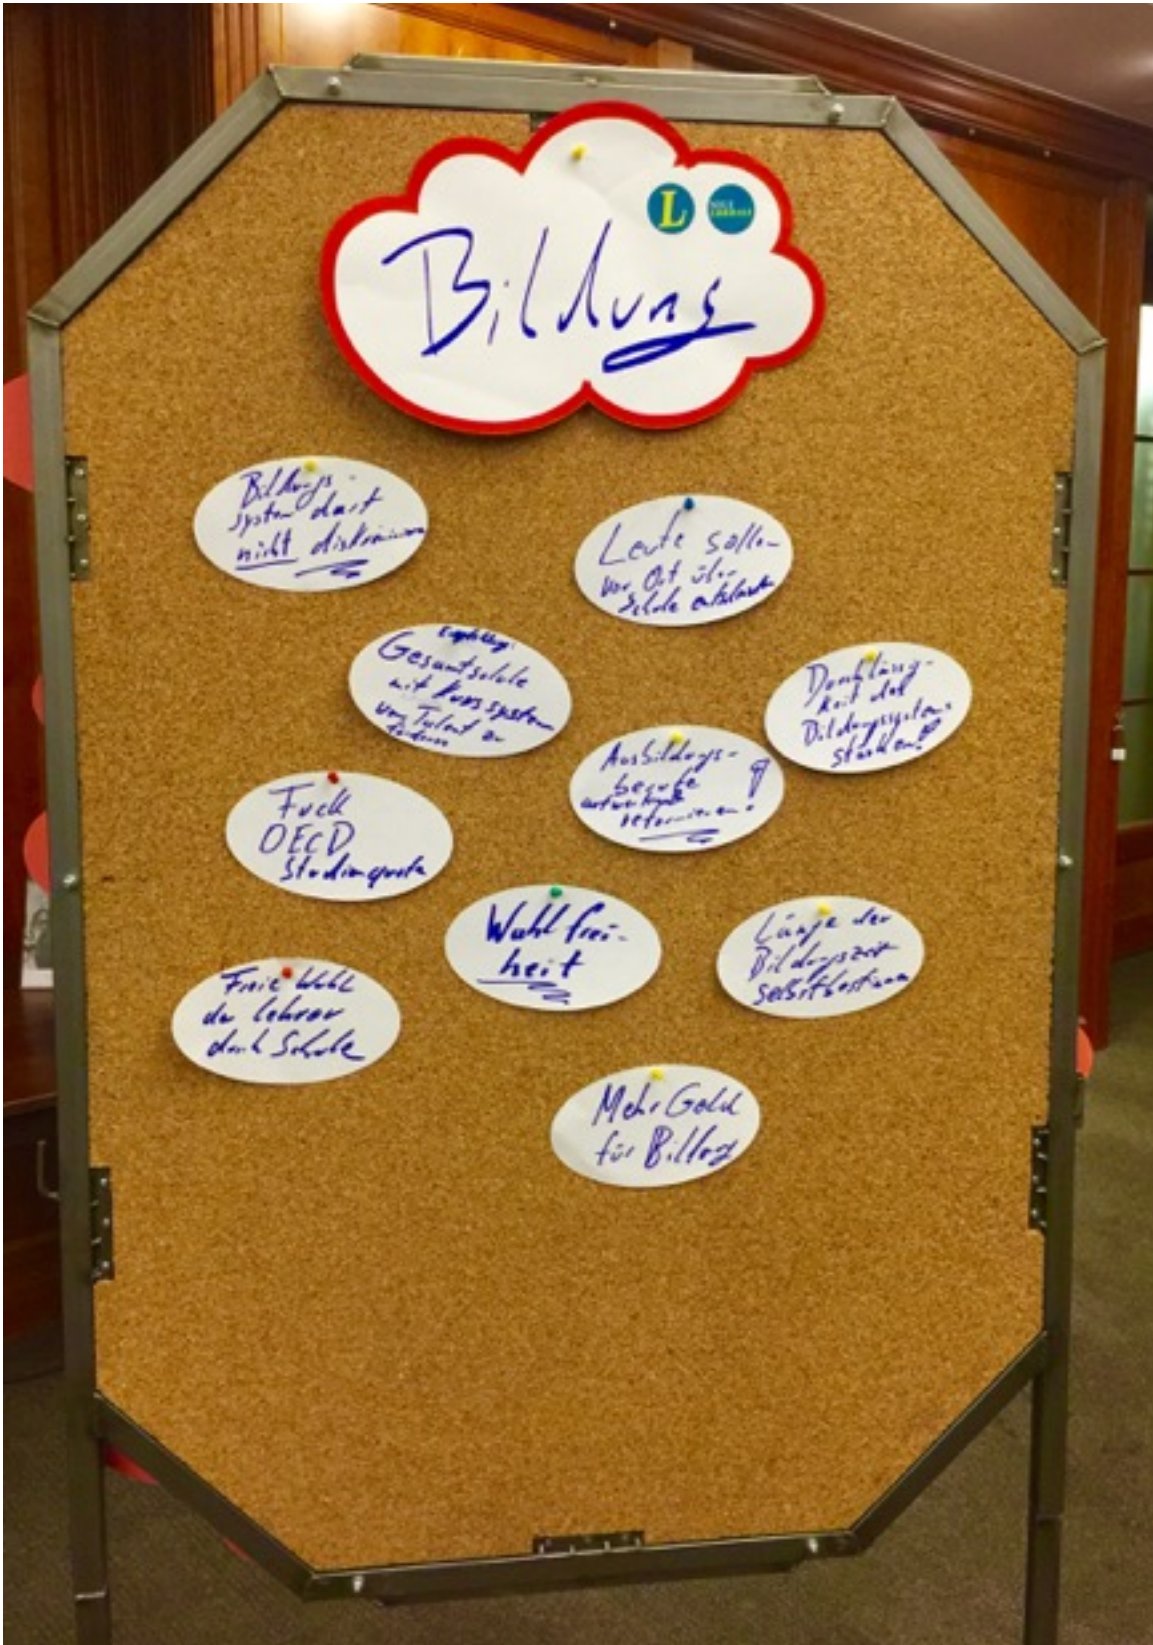 Bildung
L
NEUE
LIBERALE
Bildungs-
system darf
nicht diskriminieren
Leute sollen
vor Ort über
Schule entscheiden
Empfehlung:
Gesamtschule
mit Kurssystem
um Talent zu
fördern
Durchlässig-
keit des
Bildungssystems
stärken!
Ausbildungs-
berufe
reformieren!
Fuck
OECD
Studienquote
Wahlfrei-
heit
Länge der
Bildungszeit
selbstbestimmen
Freie Wahl
der Lehrer
durch Schule
Mehr Geld
für Bildung